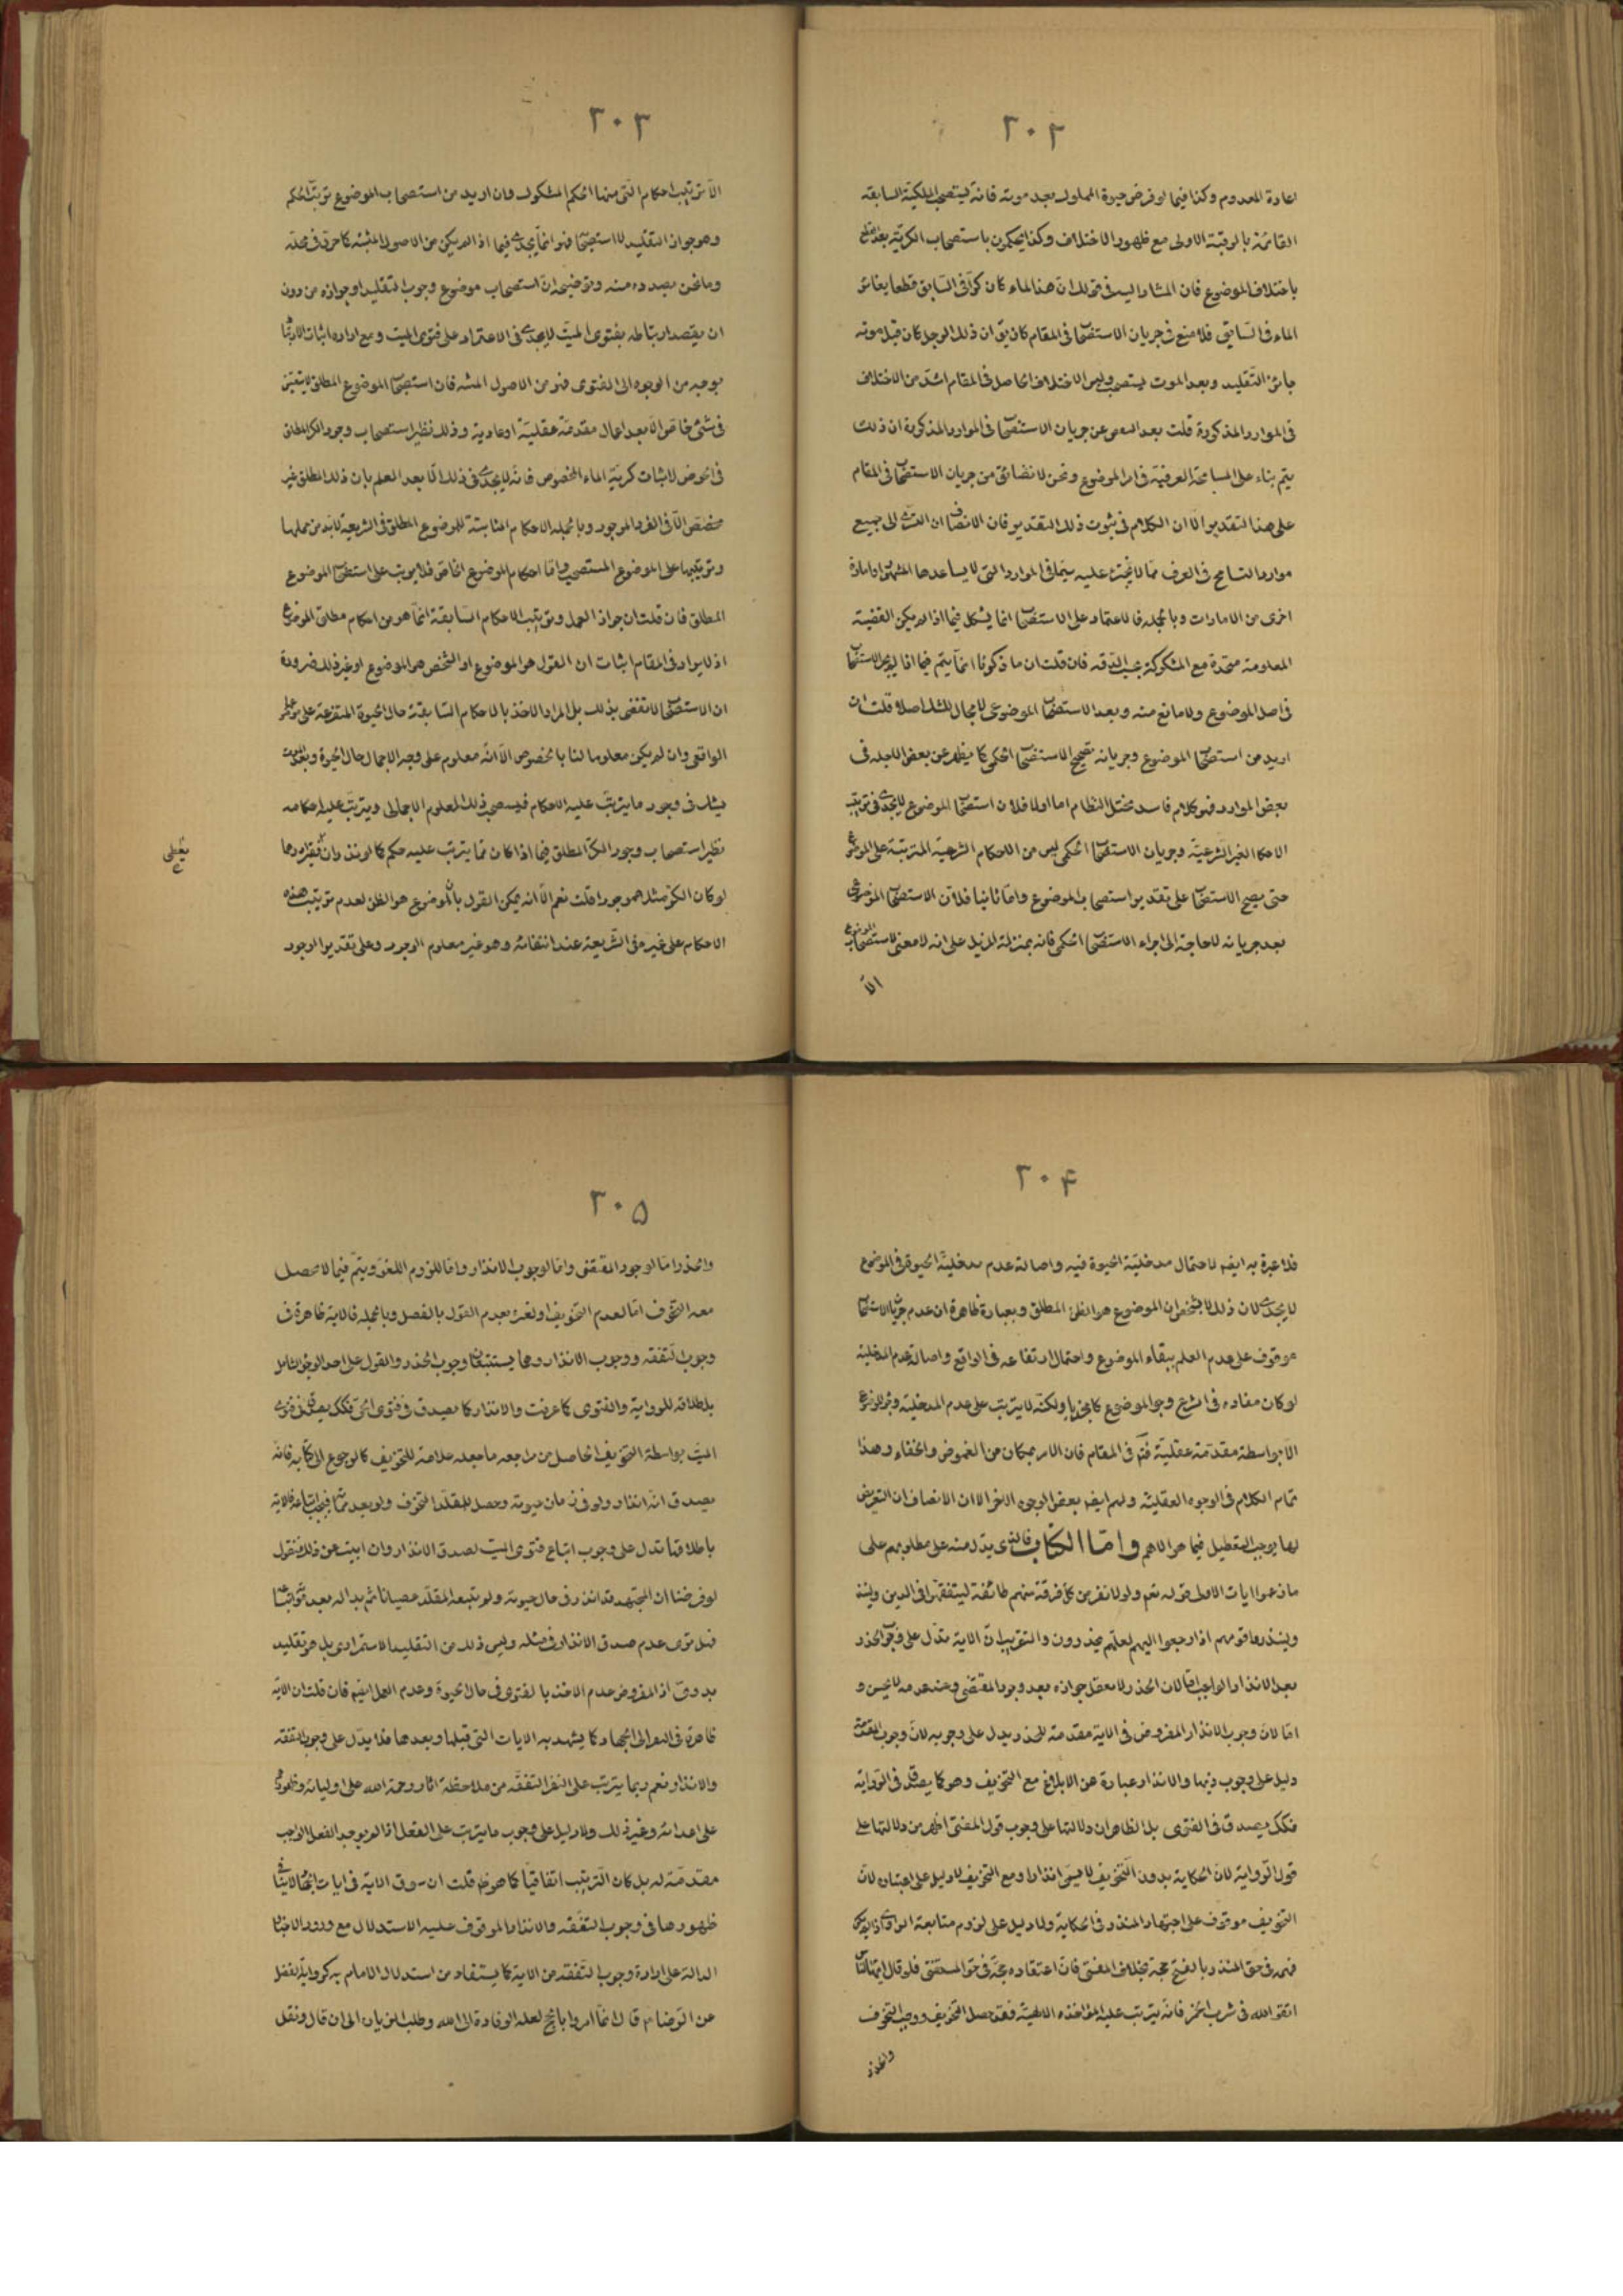 ٢٠٢
اعادة المعدوم وكذا فيما لو فرض حيوة المملوك بعد موته فانه يستصحب الملكية السابقه
القائمة بالرقبة الاولى مع ظهور الاختلاف وكذا يحكمون باستصحاب الكرية بعد القطع
باختلاف الموضوع فان المشار اليه في قولك ان هذا الماء كان كرا في السابق قطعا يغاير
الماء في السابق فلا منع في جريان الاستصحاب في المقام كان يق ان ذلك الرجل كان قبل موته
جايز التقليد وبعد الموت يستصحب وليس الاختلاف الحاصل في المقام اشد من الاختلاف
في الموارد المذكورة قلت بعد الغض عن جريان الاستصحاب في الموارد المذكورة ان ذلك
يتم بناء على المسامحة العرفية في امر الموضوع ونحن لا نضائق من جريان الاستصحاب في المقام
على هذا التقدير الا ان الكلام في ثبوت ذلك التقدير فان الانصاف ان التسري الى جميع
موارد التسامح في العرف مما لا يجترء عليه سيما في الموارد التي لا يساعدها الشهرة او امارة
اخرى من الامارات وبالجملة فالاعتماد على الاستصحاب انما يشكل فيما اذا لم يكن القضية
المعلومة متحدة مع المشكوكة بحسب الدقه فان قلت ان ما ذكرنا انما يتم فيما اذا لم يجر الاستصحاب
في اصل الموضوع ولا مانع منه وبعد الاستصحاب الموضوعي لا مجال للشك اصلا قلت ان
اريد من استصحاب الموضوع وجريانه تصحيح الاستصحاب الحكمي كما يظهر عن بعض الاجله في
بعض الموارد فهو كلام فاسد مختل النظام اما اولا فلان استصحاب الموضوع لا يجدى في ترتيب
الاحكام الغير الشرعية وجريان الاستصحاب الحكمى ليس من الاحكام الشرعية المترتبة على الموضوع
حتى يصح الاستصحاب على تقدير استصحاب الموضوع واما ثانيا فلان الاستصحاب الموضوعى
بعد جريانه لا حاجة الى اجراء الاستصحاب الحكمى فانه بمنزلة المزيل على انه لا معنى لاستصحاب الموضوع
الا
٢٠٣
الا ترتيب احكام التى منها الحكم المشكوك وان اريد من استصحاب الموضوع ترتب الحكم
وهو جواز التقليد للاستصحاب فهو انما يجدى فيما اذا لم يكن من الاصول المثبتة كما حرر في محله
وما نحن بصدده منه وتوضيحه ان استصحاب موضوع وجوب التقليد او جوازه من دون
ان يقصد ارتباطه بفتوى الميت لا يجدى في الاعتماد على فتوى الميت ومع ارادة اثبات الارتباط
بوجه من الوجوه الى الفتوى فهو من الاصول المثبته فان استصحاب الموضوع المطلق لا يتعين
في شئ خاص الا بعد اعمال مقدمة عقلية او عادية وذلك نظير استصحاب وجود الكر المطلق
في الحوض لاثبات كرية الماء المخصوص فانه لا يجدى في ذلك الا بعد العلم بان ذلك المطلق غير
متخصص الا في الفرد الموجود وبالجملة الاحكام الثابتة للموضوع المطلق في الشريعة لابد من حملها
وترتيبها على الموضوع المستصحب واما احكام الموضوع الخاص فلا يترتب على استصحاب الموضوع
المطلق فان قلت ان جواز العمل وترتيب الاحكام السابقة انما هو من احكام مطلق الموضوع
اذ لا يراد في المقام اثبات ان القول هو الموضوع او الشخص هو الموضوع او غير ذلك ضرورة
ان الاستصحاب لا تقضى بذلك بل المراد الاخذ بالاحكام السابقة حال الحيوة المتفرعة على موضوعها
الواقعى وان لم يكن معلوما لنا بالخصوص الا انه معلوم على وجه الاجمال حال الحيوة وبعد الموت
يشك في وجود ما يترتب عليه الاحكام فيستصحب ذلك المعلوم الاجمالى ويترتب عليه احكامه
نظير استصحاب وجود الكر المطلق فيما اذا كان مما يترتب عليه حكم كما لو نذر وان يعطى فقيرا درهما
لو كان الكر مثلا موجودا قلت نعم الا انه يمكن القول بان الموضوع هو الظن لعدم ترتيب هذه
الاحكام على غيره في الشريعة عند انتفائه وهو غير معلوم الوجود وعلى تقدير الوجود
يعطى
٢٠۴
فلا عبرة به ايضا لاحتمال مدخلية الحيوة فيه واصالة عدم مدخلية الحيوة في الموضوع
لا يجدى لان ذلك لا يشخص ان الموضوع هو الظن المطلق وبعبارة ظاهرة ان عدم جريان الاستصحاب
موقوف على عدم العلم ببقاء الموضوع واحتمال ارتفاعه في الواقع واصالة عدم المدخلية
لو كان مفاده في الشرع وجود الموضوع كما يجديا ولكنه لا يترتب على عدم المدخلية وجود الموضوع
الا بواسطة مقدمة عقلية فتم في المقام فان الامر بمكان من الغموض والخفاء وهذا
تمام الكلام في الوجوه العقلية ولهم ايضا بعض الوجوه الاخر الا ان الانصاف ان التعرض
لها يوجب التعطيل فيما هو الاهم واما الكتاب فالذى يدل منه على مطلوبهم على
ما زعموا ايات الاولى قوله تعم ولولا نفر من كل فرقة منهم طائفة ليتفقهوا في الدين ولينذ
ولينذروا قومهم اذا رجعوا اليهم لعلهم يحذرون والتقريب ان الاية تدل على وجوب الحذر
بعد الانذار الواجب اما لان الحذر لا معقل جوازه بعد وجود المقتضى وعند عدمه لا يحسن و
اما لان وجوب الانذار المفروض في الاية مقدمة للحذر يدل على وجوبه لان وجوب المقدمة
دليل على وجوب ذيها والانذار عبارة عن الابلاغ مع التخويف وهو كما يصدق في الرواية
فكك يصدق في الفتوى بل الظاهر ان دلالتها على وجوب قول المفتى اظهر من دلالتها على
قول الرواية لان الحكاية بدون التخويف لا يسمى انذارا ومع التخويف لا دليل على اعتباره لان
التخويف موقوف على اجتهاد المنذر في الحكاية ولا دليل على لزوم متابعة الراوى اذ لا يكون
فهمه في حق المنذر بالفتح حجة بخلاف المفتى فان اعتقاده حجة في حق المستفتى فلو قال ايها الناس
اتقوا الله في شرب الخمر فانه يترتب عليه المؤاخذة الالهية فقد حصل التخويف ووجب التخوف
والحذر
٢٠۵
والحذر اما لوجود المقتضى واما لوجوب الانذار واما للزوم اللغو ويتم فيما لا يحصل
معه التخوف اما لعدم التخويف او لغيره بعدم القول بالفصل وبالجملة فالاية ظاهرة في
وجوب التفقه ووجوب الانذار وهما يستتبعان وجوب الحذر والقول على احد الوجوه الشامل
باطلاقه للرواية والفتوى كما عرفت والانذار كما يصدق في فتوى الحى فكك يصدق في فتوى
الميت بواسطة التخويف الحاصل من مراجعه ما جعله علامة للتخويف كالرجوع الى كتابه فانه
يصدق انه انقاد ولو في زمان حيوته وحصل للمقلد التخوف ولو بعد مماته فيجب اتباعه فالاية
باطلاقها تدل على وجوب اتباع فتوى الميت لصدق الانذار وان ابيت عن ذلك فنقول
لو فرضنا ان المجتهد قد انذر في حال حيوته ولم يتبعه المقلد عصيانا ثم بداله بعد موته اتباعه
فهل ترى عدم صدق الانذار في مثله وليس ذلك من التقليد الاستمرارى بل هو تقليد
بدوى اذ المفروض عدم الاخذ بالفتوى في حال الحيوة وعدم العمل ايضا فان قلت ان الاية
ظاهرة في النفر الى الجهاد كما يشهد به الايات التى قبلها وبعدها فلا يدل على وجوب التفقه
والانذار نعم ربما يترتب على النفر التفقه من ملاحظة اثار رحمة الله على اوليائه وظهوره
على اعدائه وغير ذلك ولا دليل على وجوب ما يترتب على الفعل اذا لم يوجد الفعل الواجب
مقدمة له بل كان الترتيب اتفاقيا كما هو ظ قلت ان سوق الاية في ايات الجهاد لا ينافى
ظهورها في وجوب التفقه والانذار الموقوف عليه الاستدلال مع ورود الاخبار
الدالة على ارادة وجوب التفقه من الاية كما يستفاد من استدلال الامام به كرواية الفضل
عن الرضا م قال انما امروا بالحج لعلة الوفادة الى الله وطلب الزيادة الى ان قال ونقل